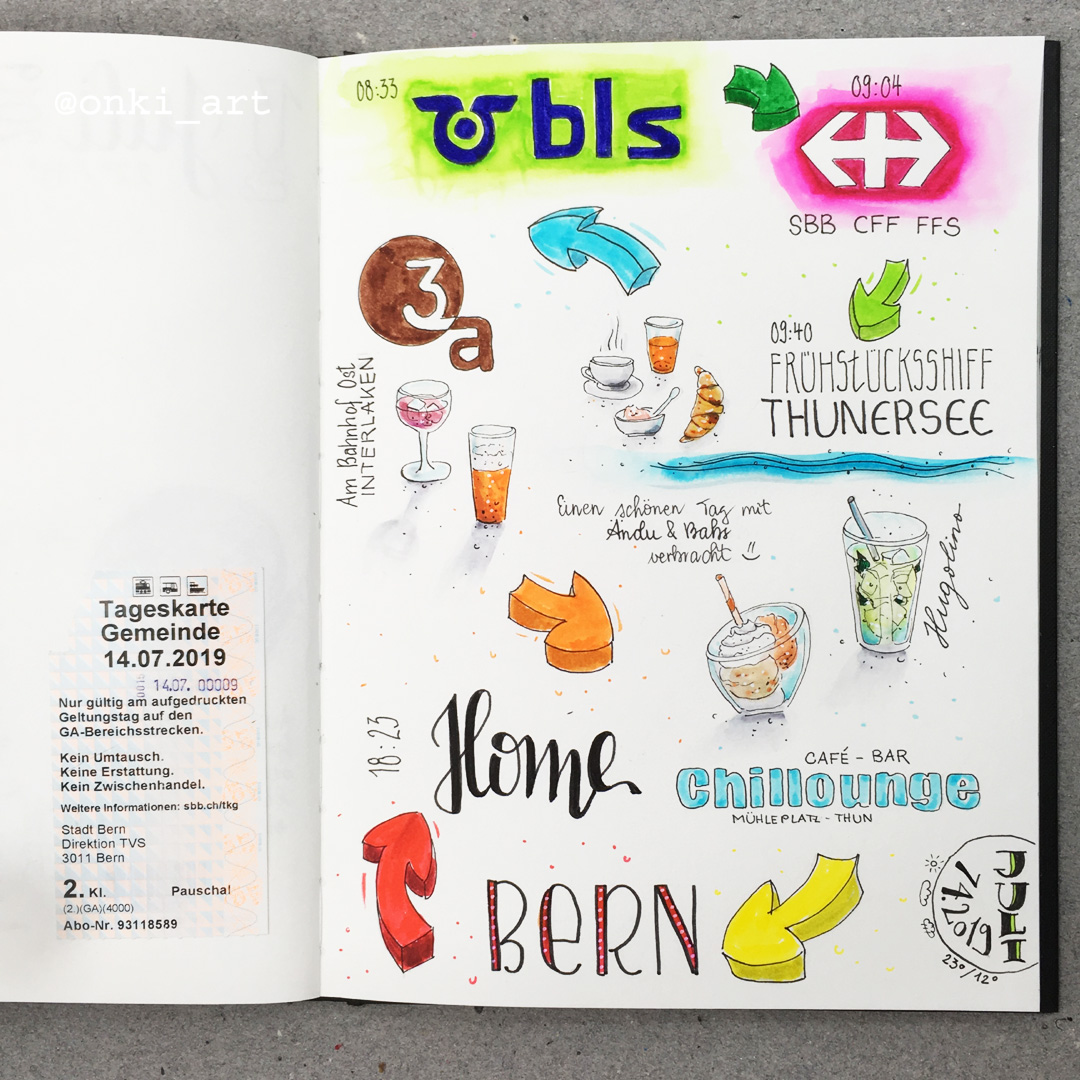 @onki_art
Tageskarte
Gemeinde
14.07.2019
14.07. 00009
Nur gültig am aufgedruckten
Geltungstag auf den
GA-Bereichsstrecken.
Kein Umtausch.
Keine Erstattung.
Kein Zwischenhandel.
Weitere Informationen: sbb.ch/tkg
Stadt Bern
Direktion TVS
3011 Bern
2. Kl. Pauschal
(2.)(GA)(4000)
Abo-Nr. 93118589
08:33
bls
09:04
SBB CFF FFS
3a
Am Bahnhof Ost
INTERLAKEN
09:40
FRÜHSTÜCKSSHIFF
THUNERSEE
Einen schönen Tag mit
Andu & Babs
verbracht
Hugolino
18:23
Home
CAFÉ - BAR
Chillounge
MÜHLEPLATZ - THUN
BERN
JULI
14.2019
23°/12°